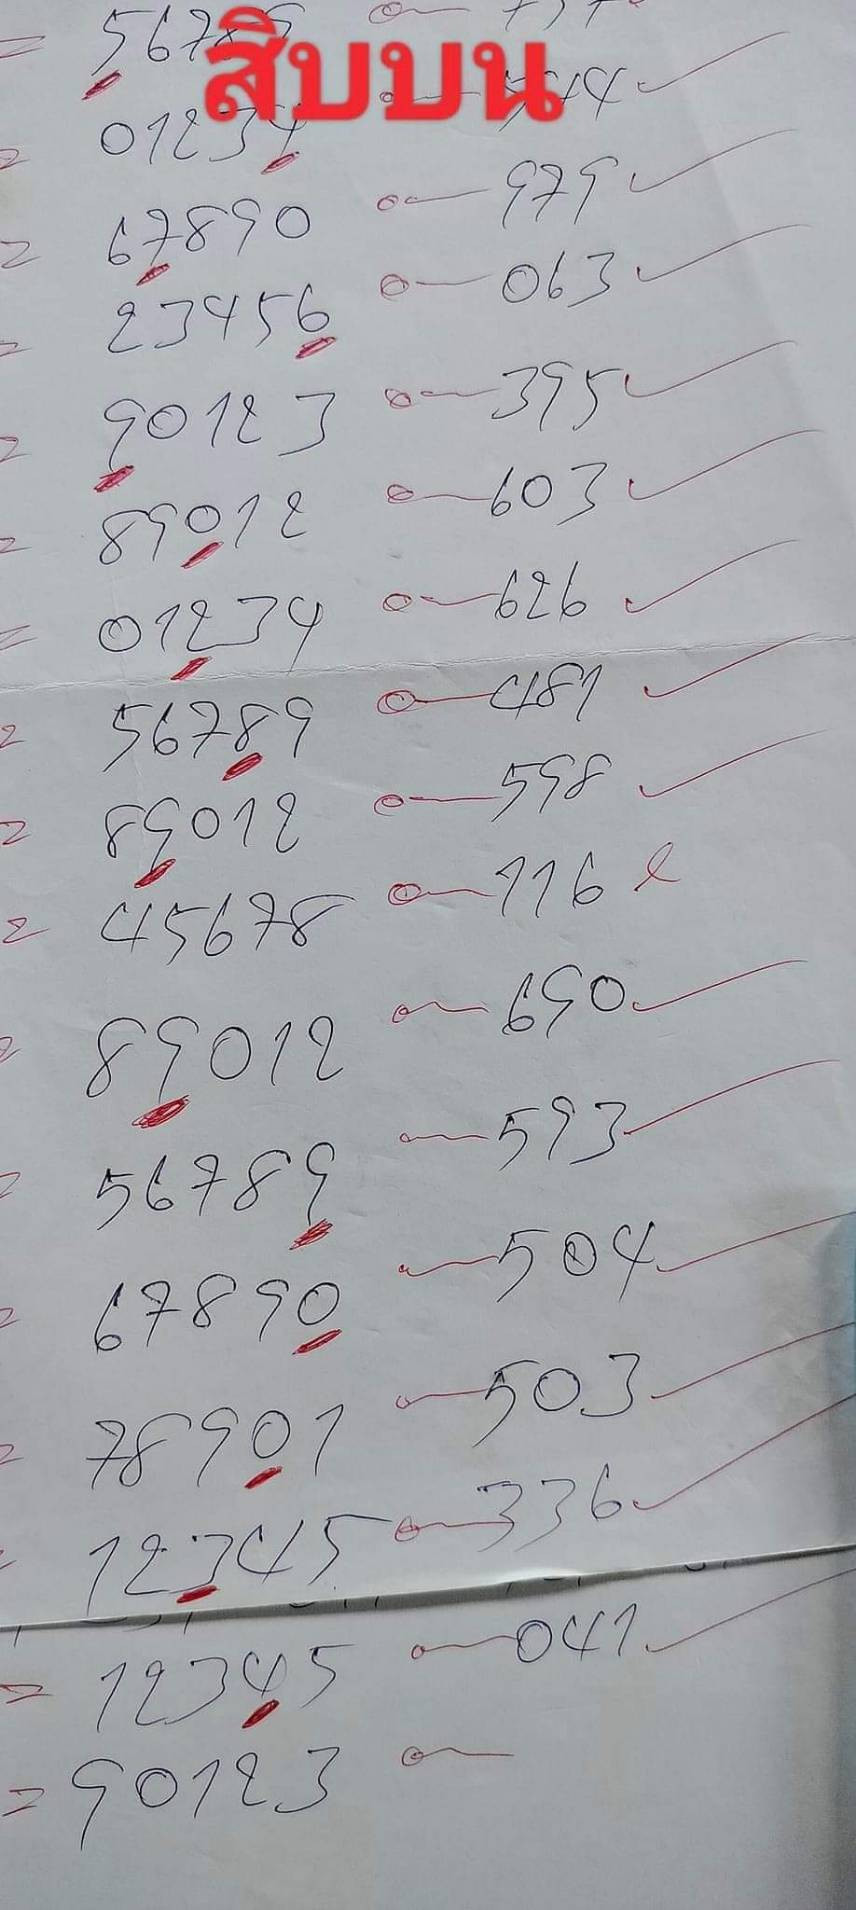 สิบบน
= 56789
= 01234 544 ✓
= 67890 979 ✓
= 23456 063 ✓
= 90123 395 ✓
= 89012 603 ✓
= 01234 626 ✓
= 56789 481 ✓
= 89012 598 ✓
= 45678 116 x
= 89012 690 ✓
= 56789 593 ✓
= 67890 504 ✓
= 78901 503 ✓
= 12345 336 ✓
= 12345 041 ✓
= 90123